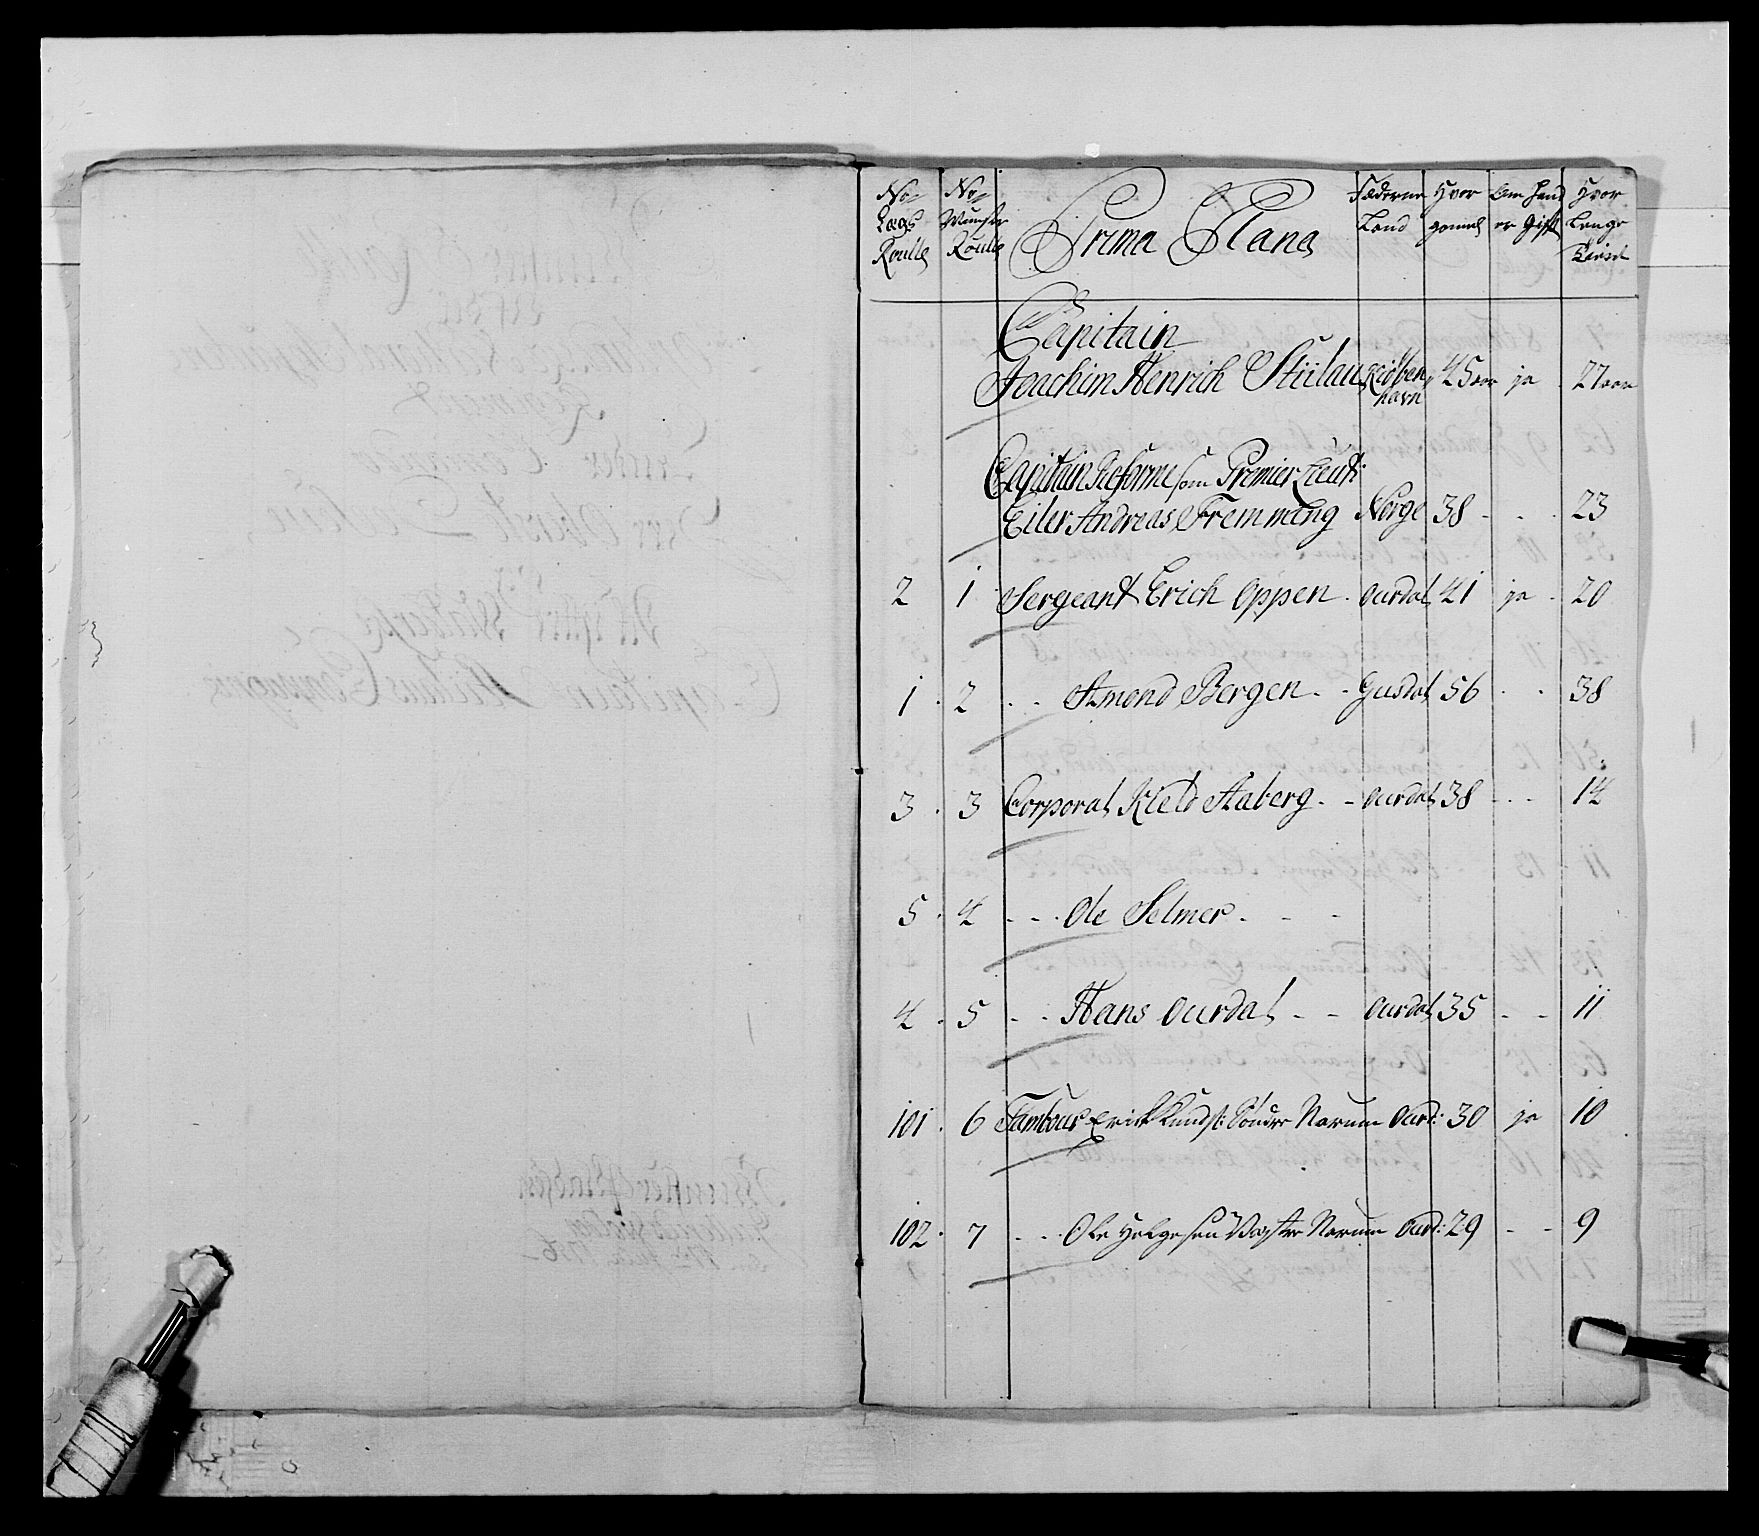 No Lægs Roulle | No Mynster Roulle | Prima Plana | Fæderne Land | Hvor gammel | Om hand er Gift | Hvor Længe tient
Capitain
Joachim Henrich Stülau Kiøbenhavn 45 aar ja 27 aar
Capitain Reforme som Premier Lieut:
Eiler Andreas Fremming Norge 38 - - 23
2 1 Sergeant Erich Oppen - Ourdal 41 ja - 20
1 - 2 - - Amond Bergen - - Gusdal 56 - - 38
3 - 3 Corporal Kield Aaberg - - Ourdal 38 - - 14
5 - 4 - - - Ole Selmer - - -
4 - 5 - - Hans Ourdal - - Ourdal 35 - - 11
101 - 6 Tambour Erich Knuds: Søndre Norum Ourd: 30 ja 10
102 - 7 - - - Ole Helgesen Vestre Norum Ourd: 29 - - 9